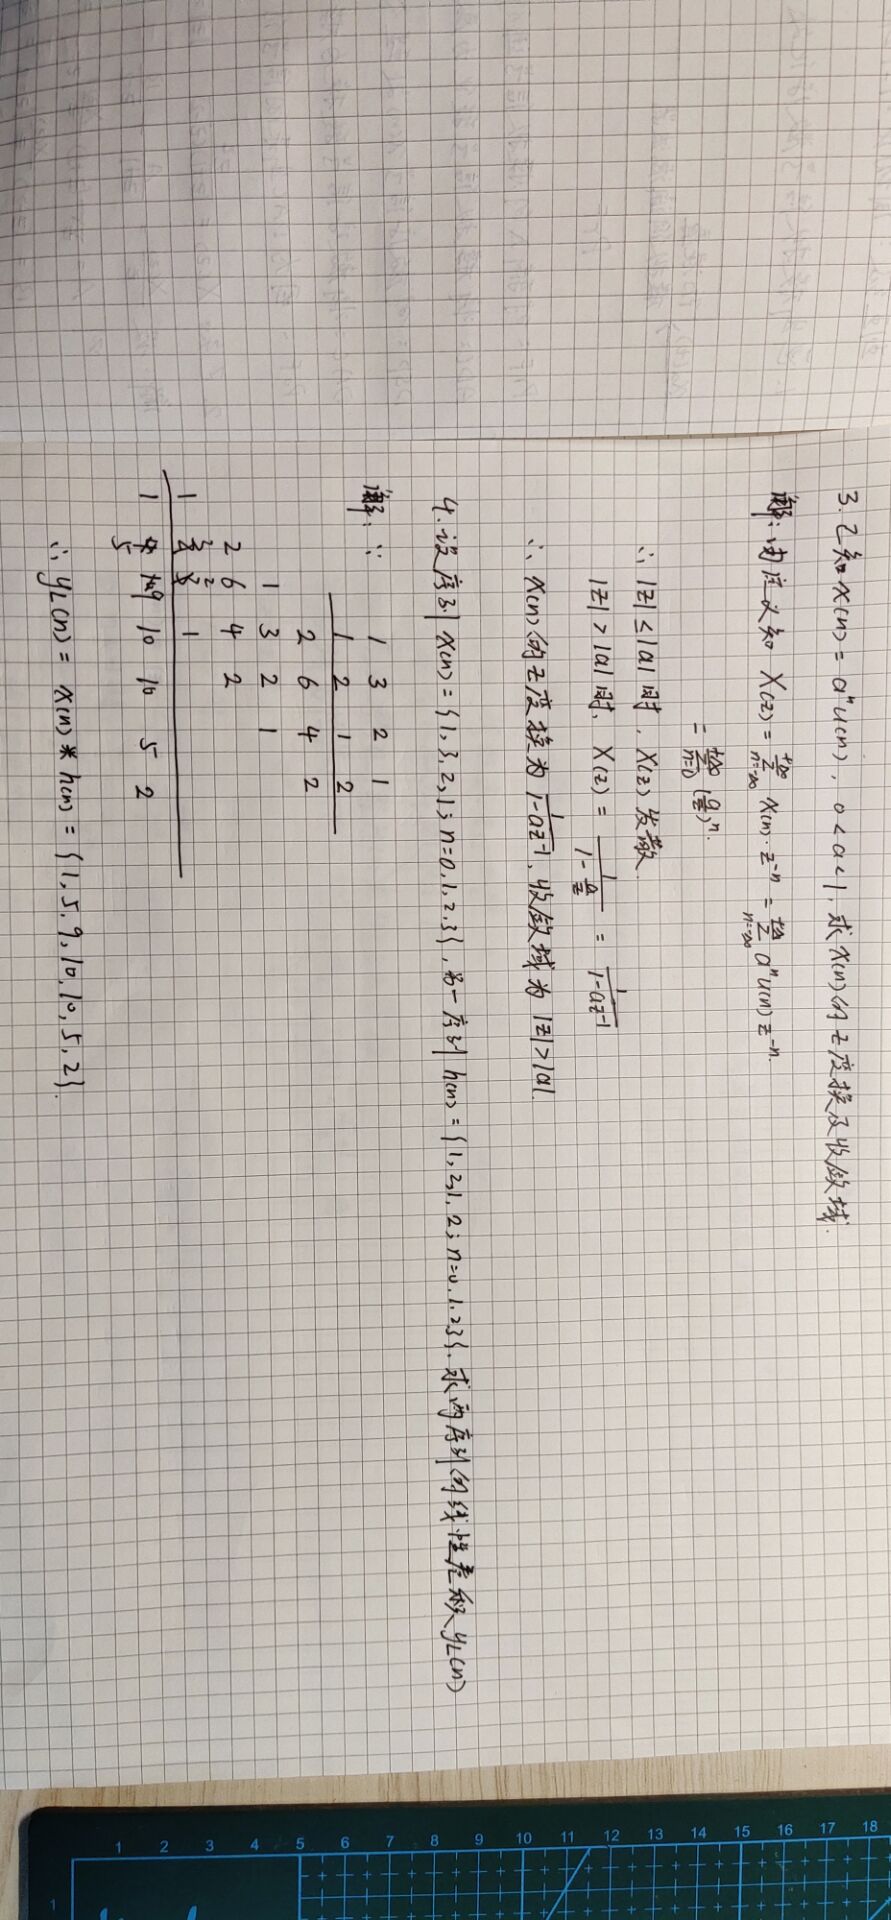 3. 已知 x(n) = aⁿu(n), 0<a<1, 求x(n)的Z变换及收敛域.
解: 由定义知 X(z) = Σ_{n=-∞}^{+∞} x(n)·z⁻ⁿ = Σ_{n=-∞}^{+∞} aⁿu(n)z⁻ⁿ.
= Σ_{n=0}^{+∞} (a/z)ⁿ.
∴ |z|≤|a| 时, X(z)发散.
|z|>|a| 时, X(z) = 1/(1-a/z) = 1/(1-az⁻¹)
∴ x(n)的Z变换为 1/(1-az⁻¹), 收敛域为 |z|>|a|.
4. 设序列 x(n)={1,3,2,1; n=0,1,2,3}, 另一序列 h(n)={1,2,1,2; n=0,1,2,3}. 求两序列的线性卷积 y_L(n)
解: ∵ 1 3 2 1
1 2 1 2
2 6 4 2
1 3 2 1
2 6 4 2
1 3 2 1
1 5 9 10 10 5 2
∴ y_L(n) = x(n) * h(n) = {1,5,9,10,10,5,2}.
1 2 3 4 5 6 7 8 9 10 11 12 13 14 15 16 17 18
1